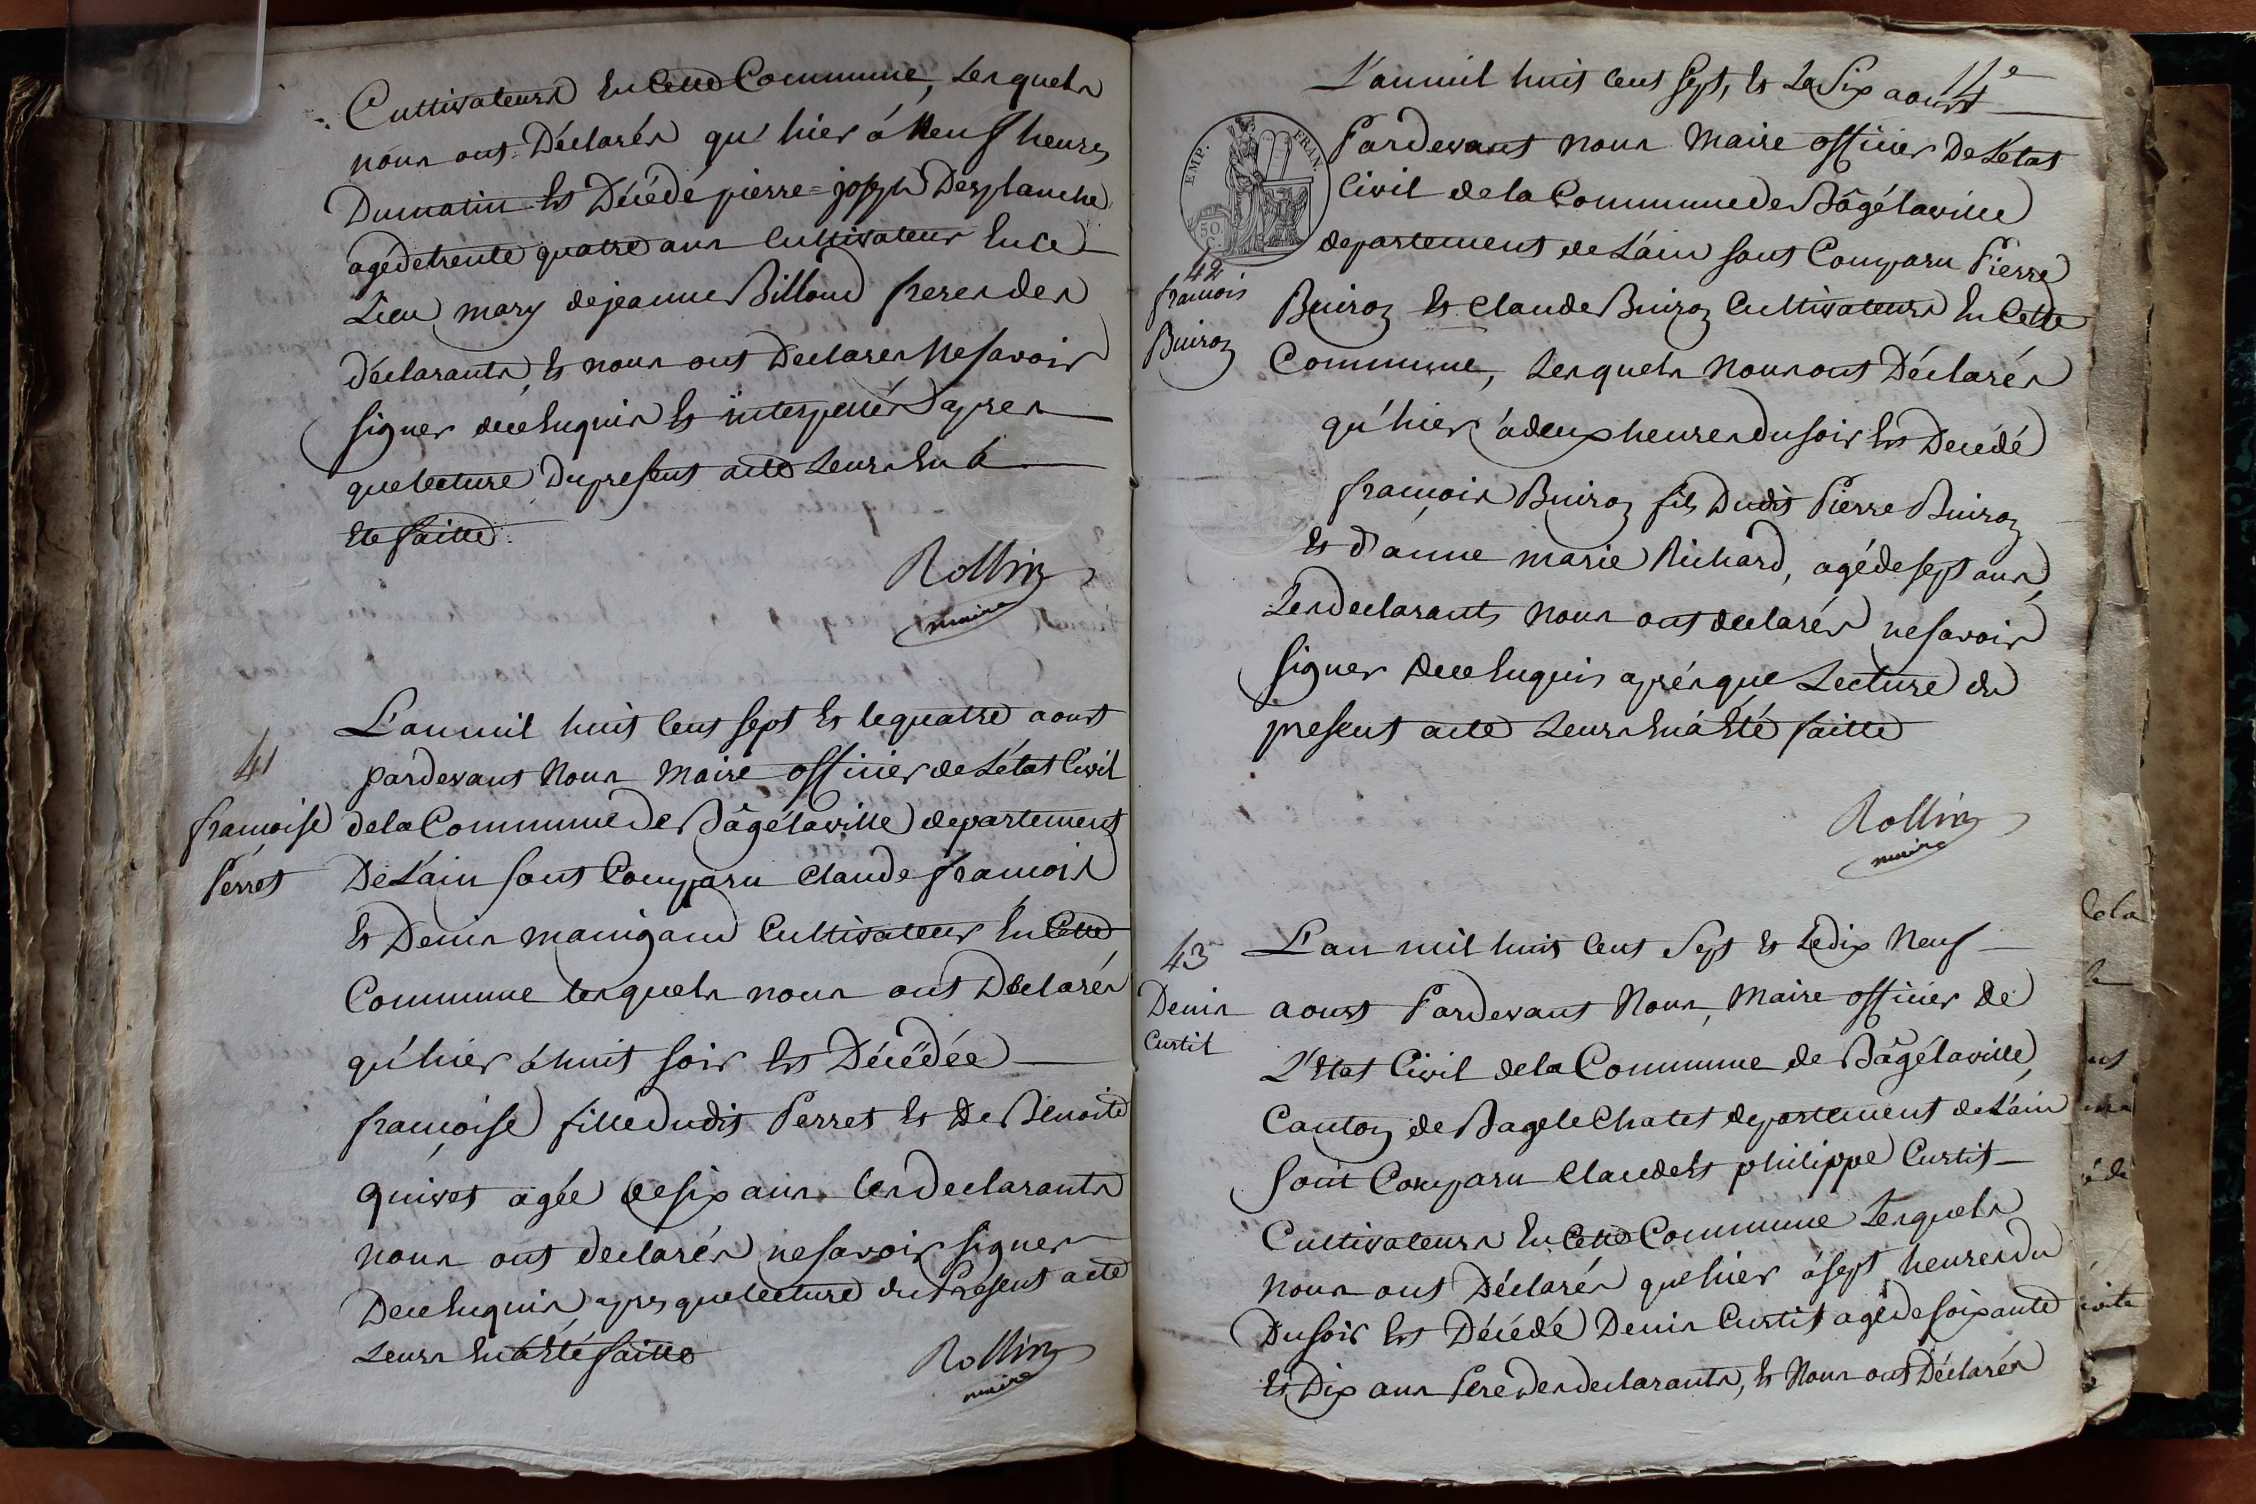 Cultivateurs En Cette Commune, Lesquels
nous ont Déclarés qu'hier á Neuf heures
Du matin Est Décédé pierre=joseph Desplanche
agé de trente quatre ans Cultivateur En ce
Lieu mary de jeanne Billoud freres des
déclarants, Et nous ont Declares Ne savoir
signer de ce Enquis Et interpellés apres
que lecture Du present acte Leurs En á
Eté faitte.
Rollin
maire
41
françoise
Perret
L'an mil huit Cent sept Et le quatre aoust
pardevant Nous Maire officier de L'état Civil
de la Commune De Bâgélaville departement
De L'ain sont Comparu Claude françois
Et Denis manigand Cultivateur En Cette
Commune lesquels nous ont Déclarés
qu'hier á huit soir Est Décédée
françoise fille dudit Perret Et De Benoite
quivet agée de six ans. les declarants
nous ont declarés ne savoir signer
De ce Enquis, apres que lecture du Present acte
Leurs En á Eté faitte
Rollin
maire
14e
L'an mil huit Cent Sept, Et Le Six aoust
EMP. FRAN.
50
C.
Pardevant nous Maire officier De L'état
Civil de la Commune de Bâgélaville
departement de L'ain sont Comparu Pierre
42
françois
Buiron
Buiron Et Claude Buiron Cultivateurs En Cette
Commune, Lesquels Nous ont Déclarés
qu'hier á deux heures du soir Est Decédé
françois Buiron fils Dudit Pierre Buiron
Et d'anne marie Richard, agé de sept ans,
Les declarants nous ont declarés ne savoir
signer de ce Enquis aprés que Lecture du
present acte Leurs En á Eté faitte
Rollin
maire
43
Denis
Curtil
L'an mil huit Cent Sept Et Le dix Neuf
aoust Pardevant Nous, Maire officier De
L'Etat Civil de la Commune de Bâgélaville,
Canton de Bagé le Chatel departement de L'ain
Sont Comparu Claude Et philippe Curtil
Cultivateurs En Cette Commune Lesquels
nous ont Déclarés que hier á sept heures du
Du soir Est Décédé Denis Curtil agé de soixante
Et Dix ans Pere des declarants, Et Nous ont Déclarés